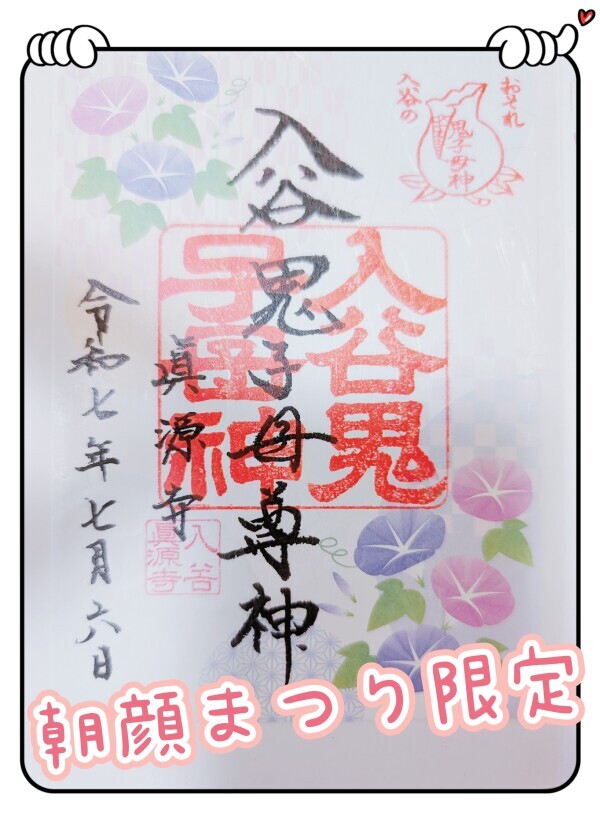 おそれ
入谷の
鬼子母神
入谷鬼子母尊神
入谷鬼
子母神
眞源寺
入谷
眞源寺
令和七年七月六日
朝顔まつり限定